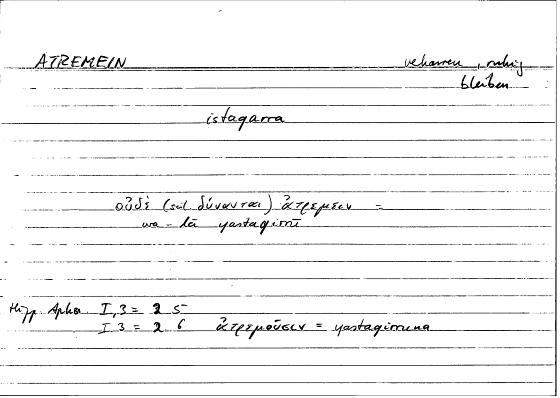 ATREMEIN verharren, ruhig
bleiben
istaqarra
οὐδὲ (scil. δύνανται) ἀτρεμεῖν =
wa-lā yastaqirrū
Hipp. Aphor. I, 3 = 2 5
I 3 = 2 6 ἀτρεμοῦσιν = yastaqirrūna